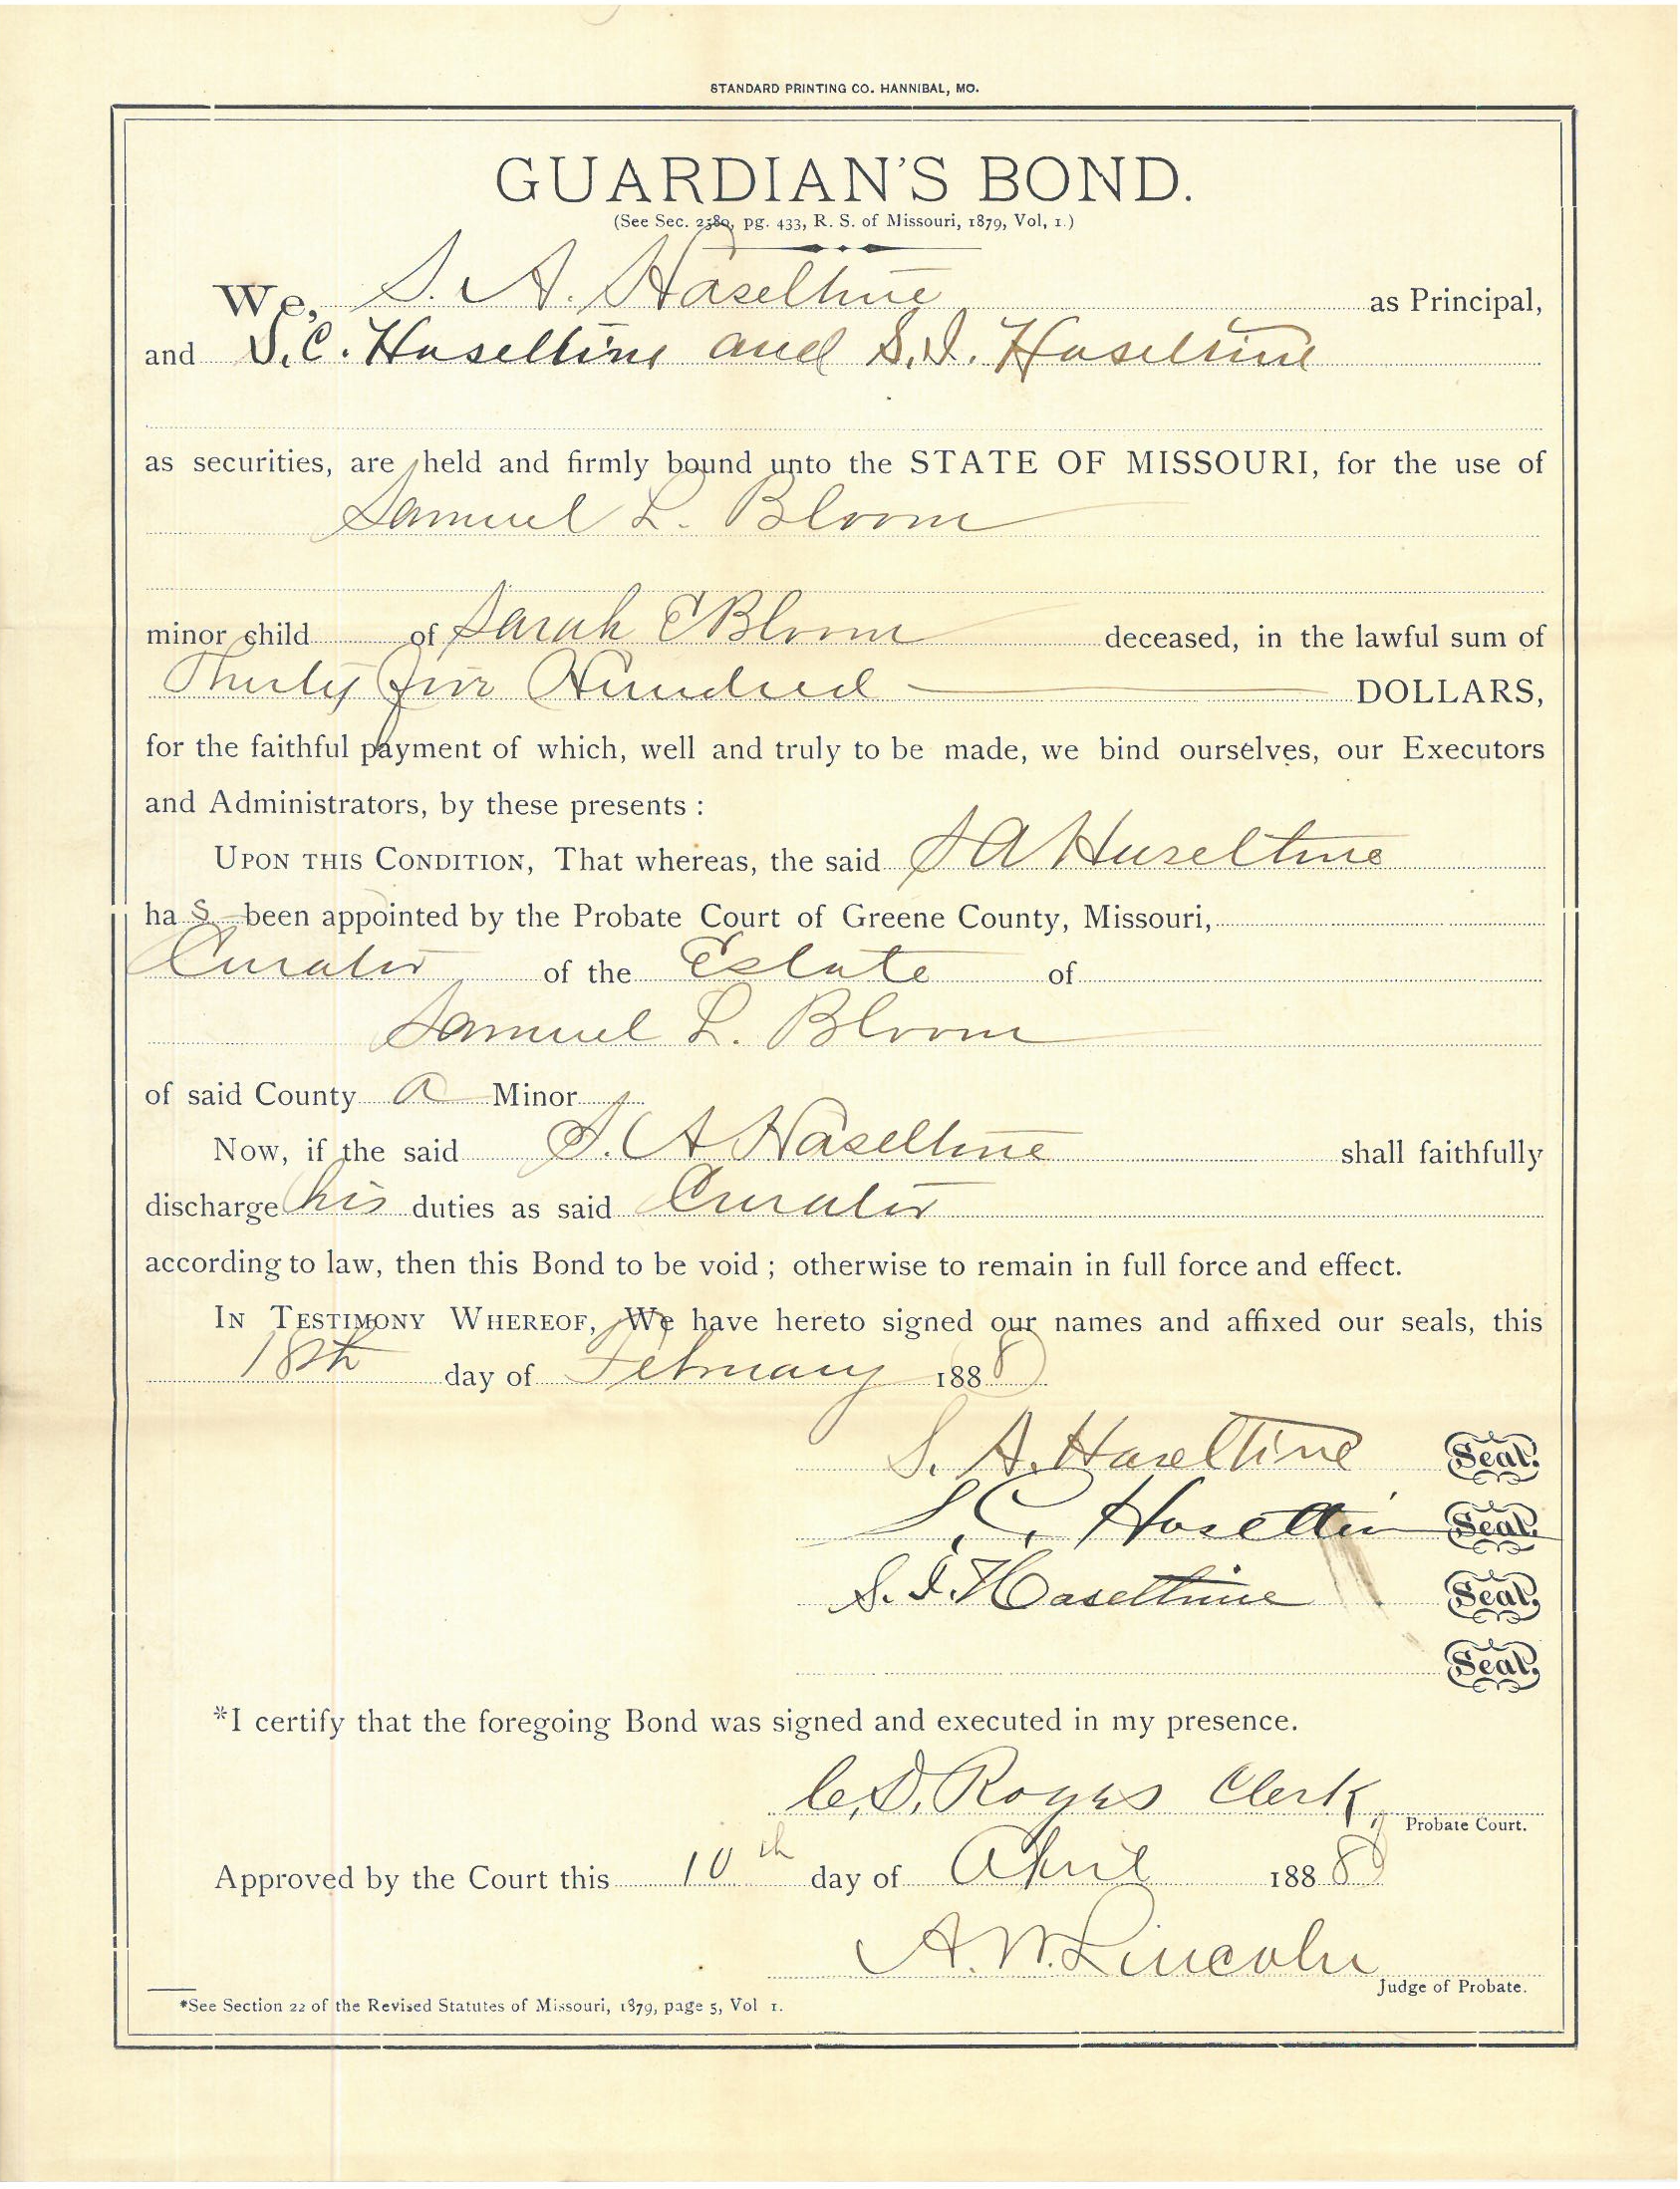 STANDARD PRINTING CO. HANNIBAL, MO.
GUARDIAN'S BOND.
(See Sec. 2580, pg. 433, R. S. of Missouri, 1879, Vol, 1.)
We, S. A. Haseltine as Principal,
and S. C. Haseltine and S. I. Haseltine
as securities, are held and firmly bound unto the STATE OF MISSOURI, for the use of
Samuel L. Bloom
minor child of Sarah E Bloom deceased, in the lawful sum of
Thirty five Hundred DOLLARS,
for the faithful payment of which, well and truly to be made, we bind ourselves, our Executors
and Administrators, by these presents :
UPON THIS CONDITION, That whereas, the said S A Haseltine
has been appointed by the Probate Court of Greene County, Missouri,
Curator of the Estate of
Samuel L. Bloom
of said County a Minor
Now, if the said S. A Haseltine shall faithfully
discharge his duties as said Curator
according to law, then this Bond to be void ; otherwise to remain in full force and effect.
IN TESTIMONY WHEREOF, We have hereto signed our names and affixed our seals, this
18th day of February 1888
S. A. Haseltine Seal.
S. C. Haseltine Seal.
S. I. Haseltine Seal.
Seal.
*I certify that the foregoing Bond was signed and executed in my presence.
C. D. Clerk,
Probate Court.
Approved by the Court this 10th day of April 1888
A. W. Lincoln
Judge of Probate.
*See Section 22 of the Revised Statutes of Missouri, 1879, page 5, Vol 1.